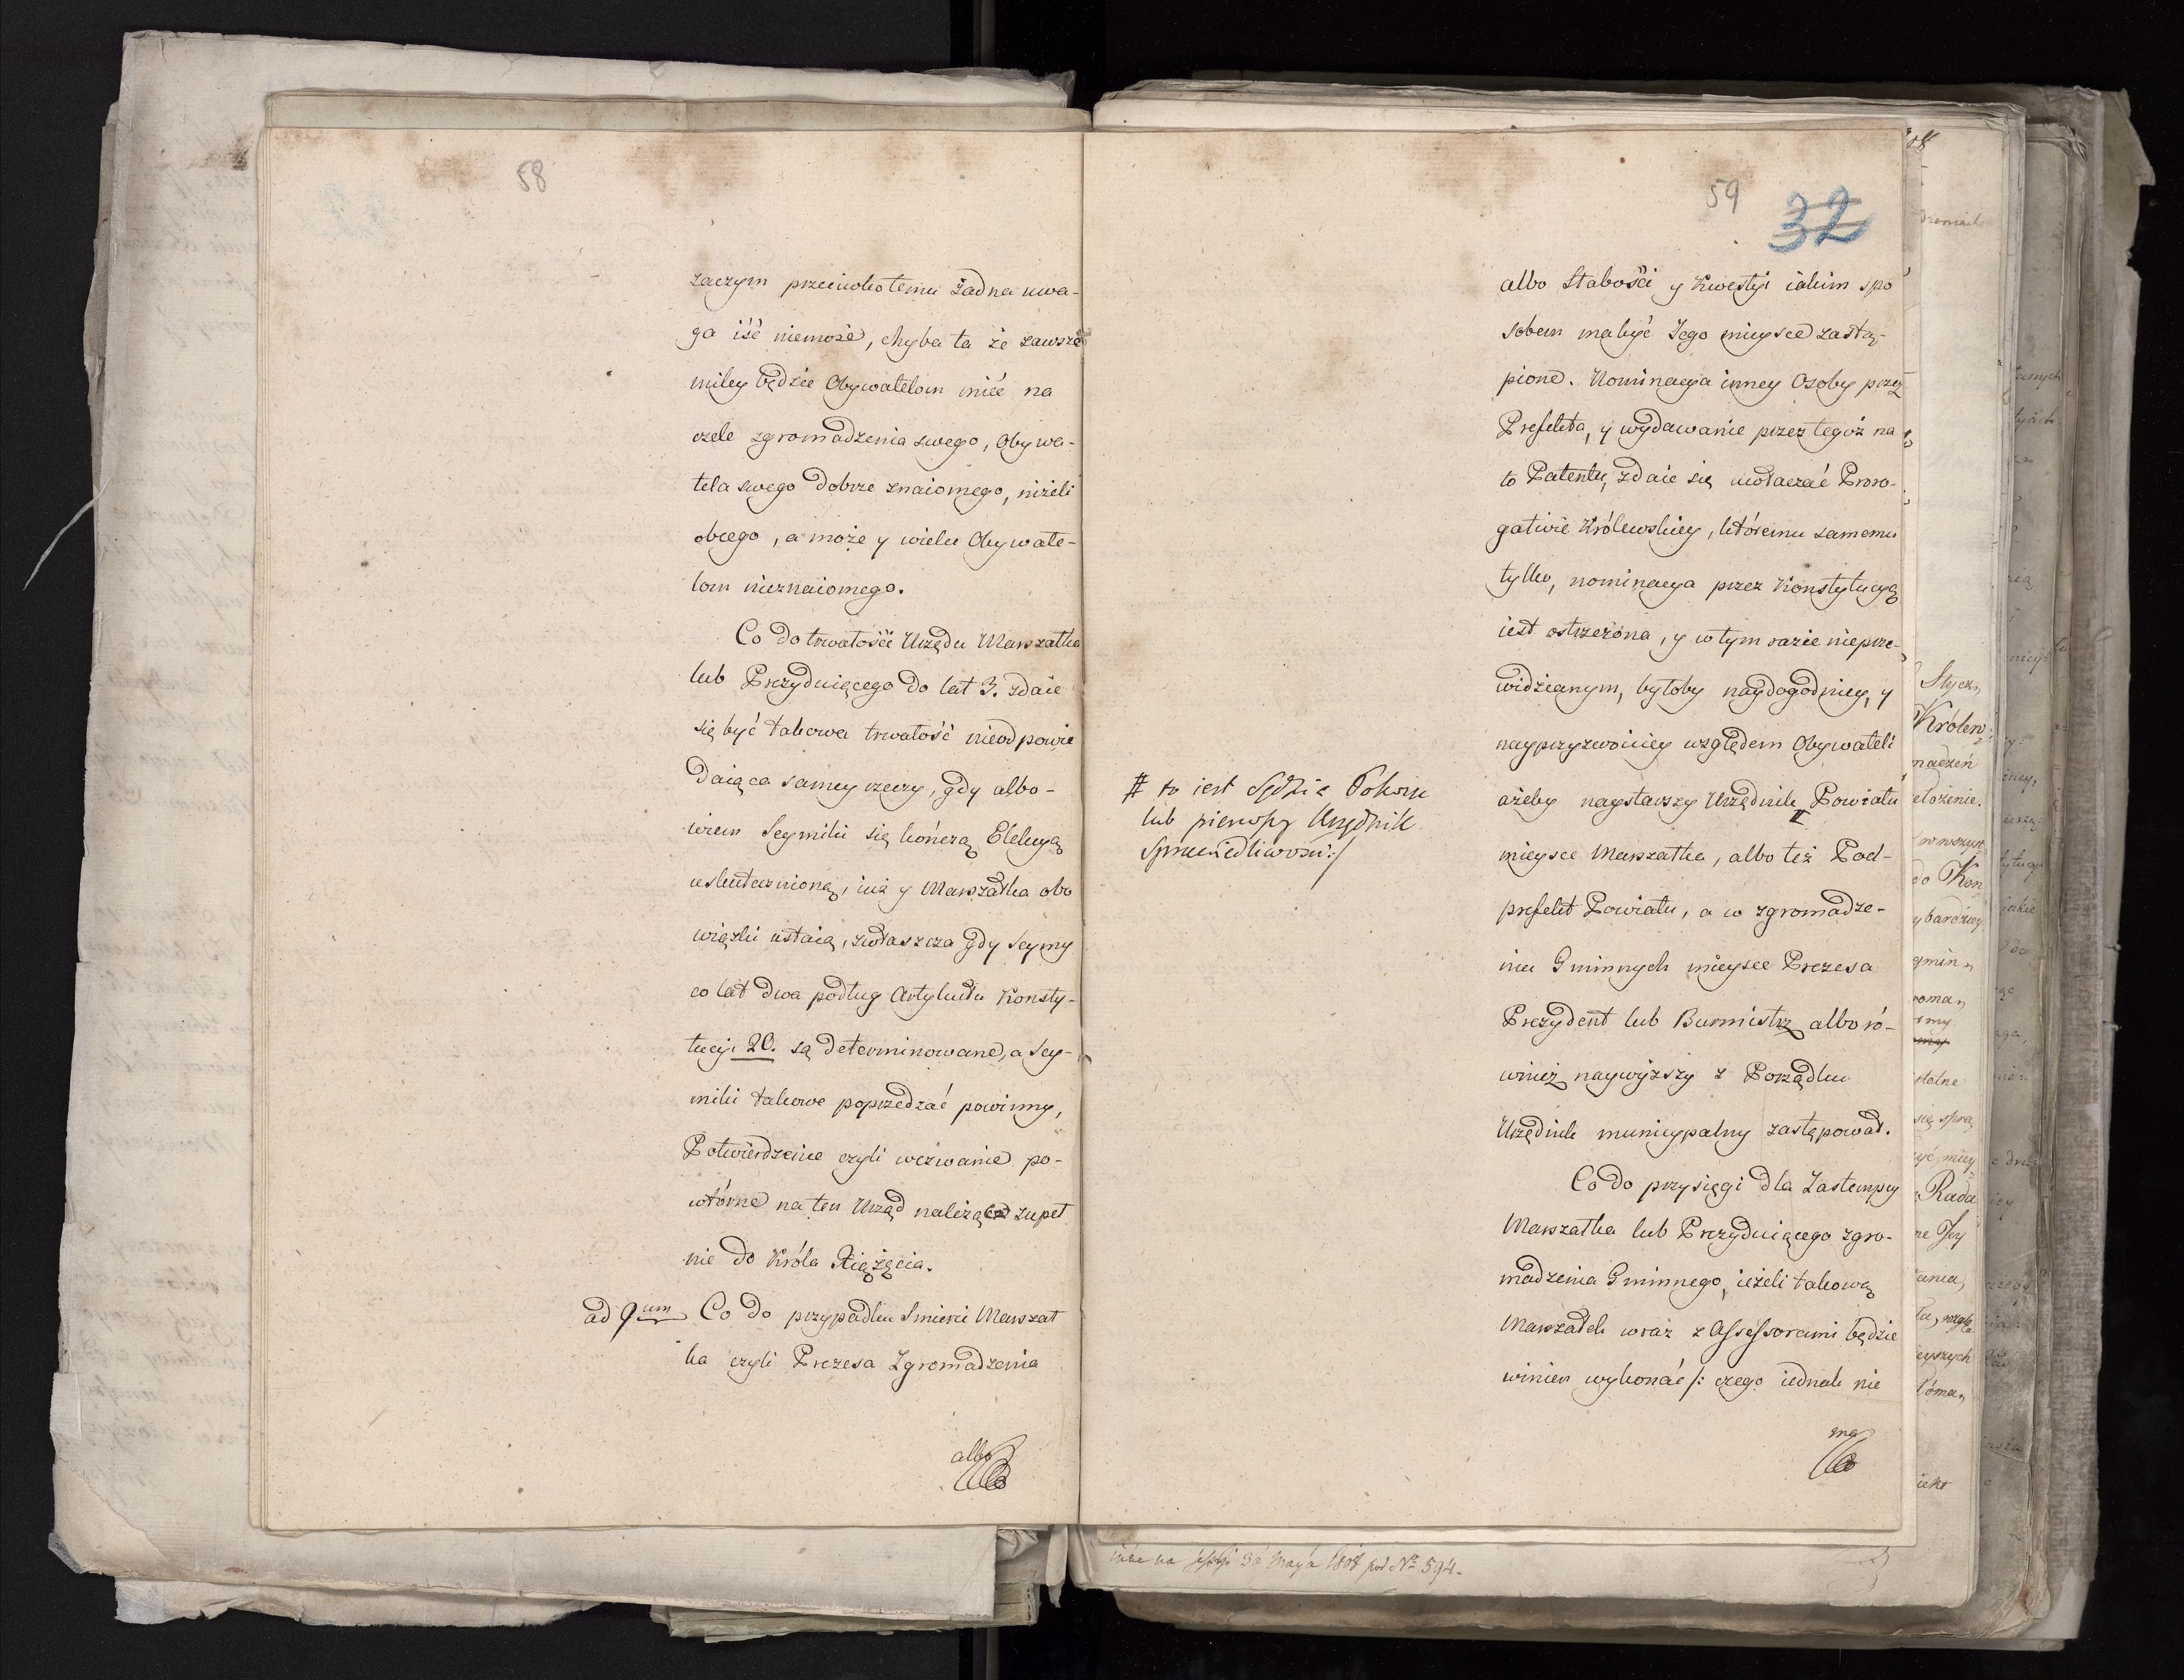 58
zaczym przeciwko temu żadna uwa-
ga iść niemoże, chyba ta że zawsze
miley będzie Obywatelom mieć na
czele zgromadzenia swego, Obywa-
tela swego dobrze znaiomego, niżeli
obcego, a może y wielu Obywate-
lom nieznaiomego.
Co do trwałości Urzędu Marszałka
lub Prezyduiącego do lat 3. zdaie
się być takowa trwałość nieodpowie
daiąca samey rzeczy, gdy albo-
wiem Seymiki się kończą Elekcyą
uskutecznioną, iuż y Marszałka obo
wiązki ustaią, zwłaszcza gdy Seymy
co lat dwa podług Artykułu Konsty-
tucyi 20. są determinowane, a Sey-
miki takowe poprzedzać powinny,
Potwierdzenie czyli wezwanie po-
wtórne na ten Urząd należące zupeł
nie do Króla Xiążęcia.
ad 9um Co do przypadku Smierci Marszał
ka czyli Prezesa Zgromadzenia
albo
59
32
albo Słabości y Kwestyi iakim spo
sobem ma być Jego mieysce zastą-
pione. Nominacya inney Osoby przez
Prefekta, y wydawanie przez tegoż na
to Patentu, zdaie się uwłaczać Prero-
gatiwie Królewskiey, któremu samemu
tylko, nominacya przez Konstytucyą
iest ostrzeżona, y w tym razie nieprze-
widzianym, byłoby naydogodniey, y
nayprzyzwoiciey względem Obywateli
ażeby naystarszy Urzędnik Powiatu #
mieysce Marszałka, albo też Pod-
prefekt Powiatu, a w zgromadze-
niu Gminnych mieysce Prezesa
Prezydent lub Burmistrz albo ró-
wnież naywyższy z Porządku
Urzędnik municypalny zastępował.
Co do przysięgi dla Zastempcy
Marszałka lub Prezyduiącego zgro-
madzenia Gminnego, ieżeli takową
Marszałek wraz z Assessorami będzie
winien wykonać /: czego iednak nie
ma
# to iest Sędzia Pokoiu
lub pierwszy Urzędnik
Sprawiedliwości :/
na sessyi 30 Maya 1808 pod No 594.